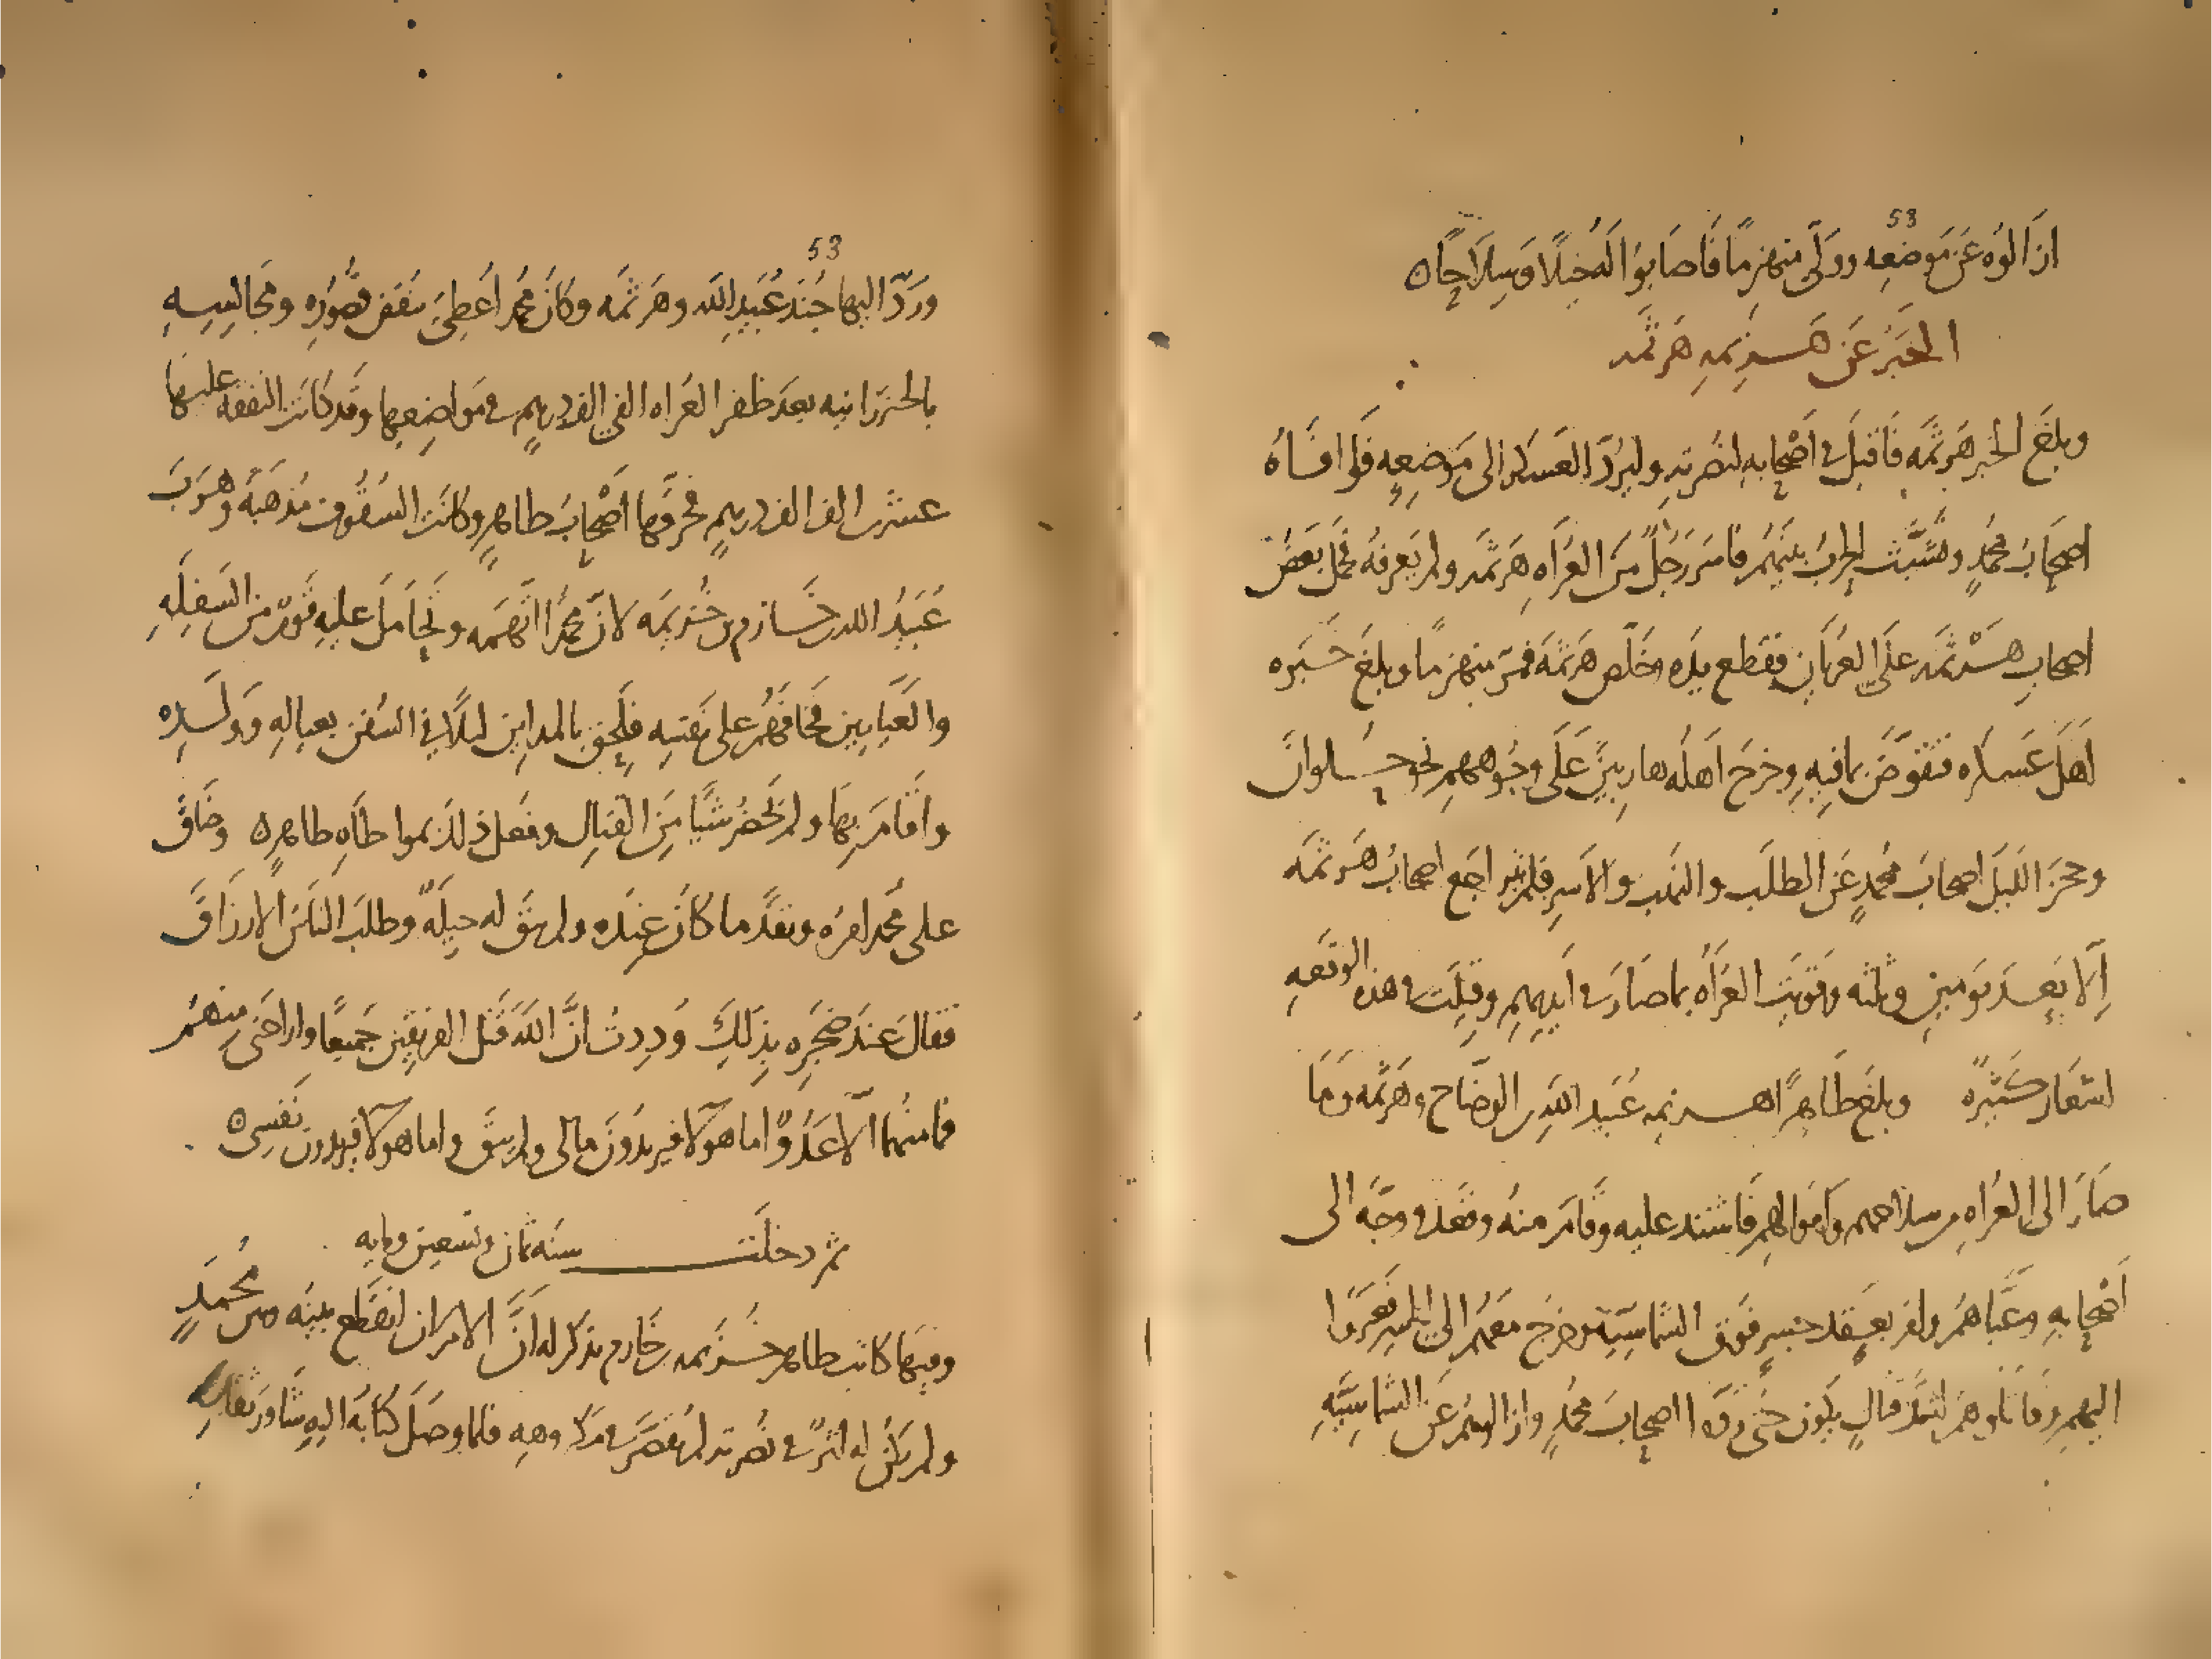 53
ازالوه عن موضعه وولّى منهزمًا فاصابوا له خيلًا وسلاحًا ه
الخبر عن هزيمه هرثمه
وبلغ الخبر هرثمه فاقبل فى اصحابه لنصرته وليردّ العسكر الى موضعه فوافاه
اصحاب محمد ونشبت الحرب بينهم فاسر رجلٌ من العراه هرثمه ولم يعرفه فحمل بعض
اصحاب هرثمه على العريان فقطع يده وخلّص هرثمه فمرّ منهزمًا وبلغ خبره
اهل عسكره فتقوّض بما فيه وخرج اهله هاربين على وجوههم نحو حلوان
وحجز الليل اصحاب محمد عن الطلب والنهب والاسر فلم تتراجع اصحاب هرثمه
الّا بعد يومين وثلثه وقويت العراه بما صار فى ايديهم وقيلت فى هذه الوقعه
اشعار كثيره وبلغ طاهرًا هزيمه عبيد الله بن الوضاح وهرثمه وما
صار الى العراه من سلاحهم واموالهم فاشتد عليه وقام منه وقعد ووجّه الى
اصحابه وعبّاهم وامر بعقد جسر فوق الشماسيه وخرج معهم الى الجسر فعبروا
اليهم وقاتلوهم اشدّ قتال يكون حتى ردّوا اصحاب محمد وازالوهم عن الشماسيّه
53
وردّ اليها جند عبيد الله وهرثمه وكان محمد اعطى بنقض قصوره ومجالسه
بالخيزرانيه بعد ظفر العراه الفى الف درهم فى مواضعها وقد كانت النفقه عليها
عشرين الف الف درهم فحرقها اصحاب طاهر وكانت السقوف مذهبة وهرب
عبيد الله بن خازم بن خزيمه لانّ محمدًا اتّهمه وتحامل عليه قوم من السفله
والعيارين فخافهم على نفسه فلحق بالمداين ليلًا فى السفن بعياله وولده
واقام بها ولم يحضر شيًا من القتال وفعل ذلك بمواطاه طاهر ه وضاق
على محمد امره ونفد ما كان عنده ولم يبق له حيلة وطلب الناس الارزاق
فقال عند ضجره بذلك وددت انّ الله قتل الفريقين جميعًا واراحنى منهم
فما منهما الّا عدوّ اما هولا فيريدون مالى ولم يبق واما هولا فيريدون نفسى ه
ثم دخلت سنه ثمان وتسعين ومايه
وفيها كاتب طاهر خزيمه بن خازم يذكر له انّ الامر ان انقطع بينه وبين محمد
ولم يكن له اثر فى نصرته لم يقصر فى مكروهه فلما وصل كتابه اليه شاور ثقاته